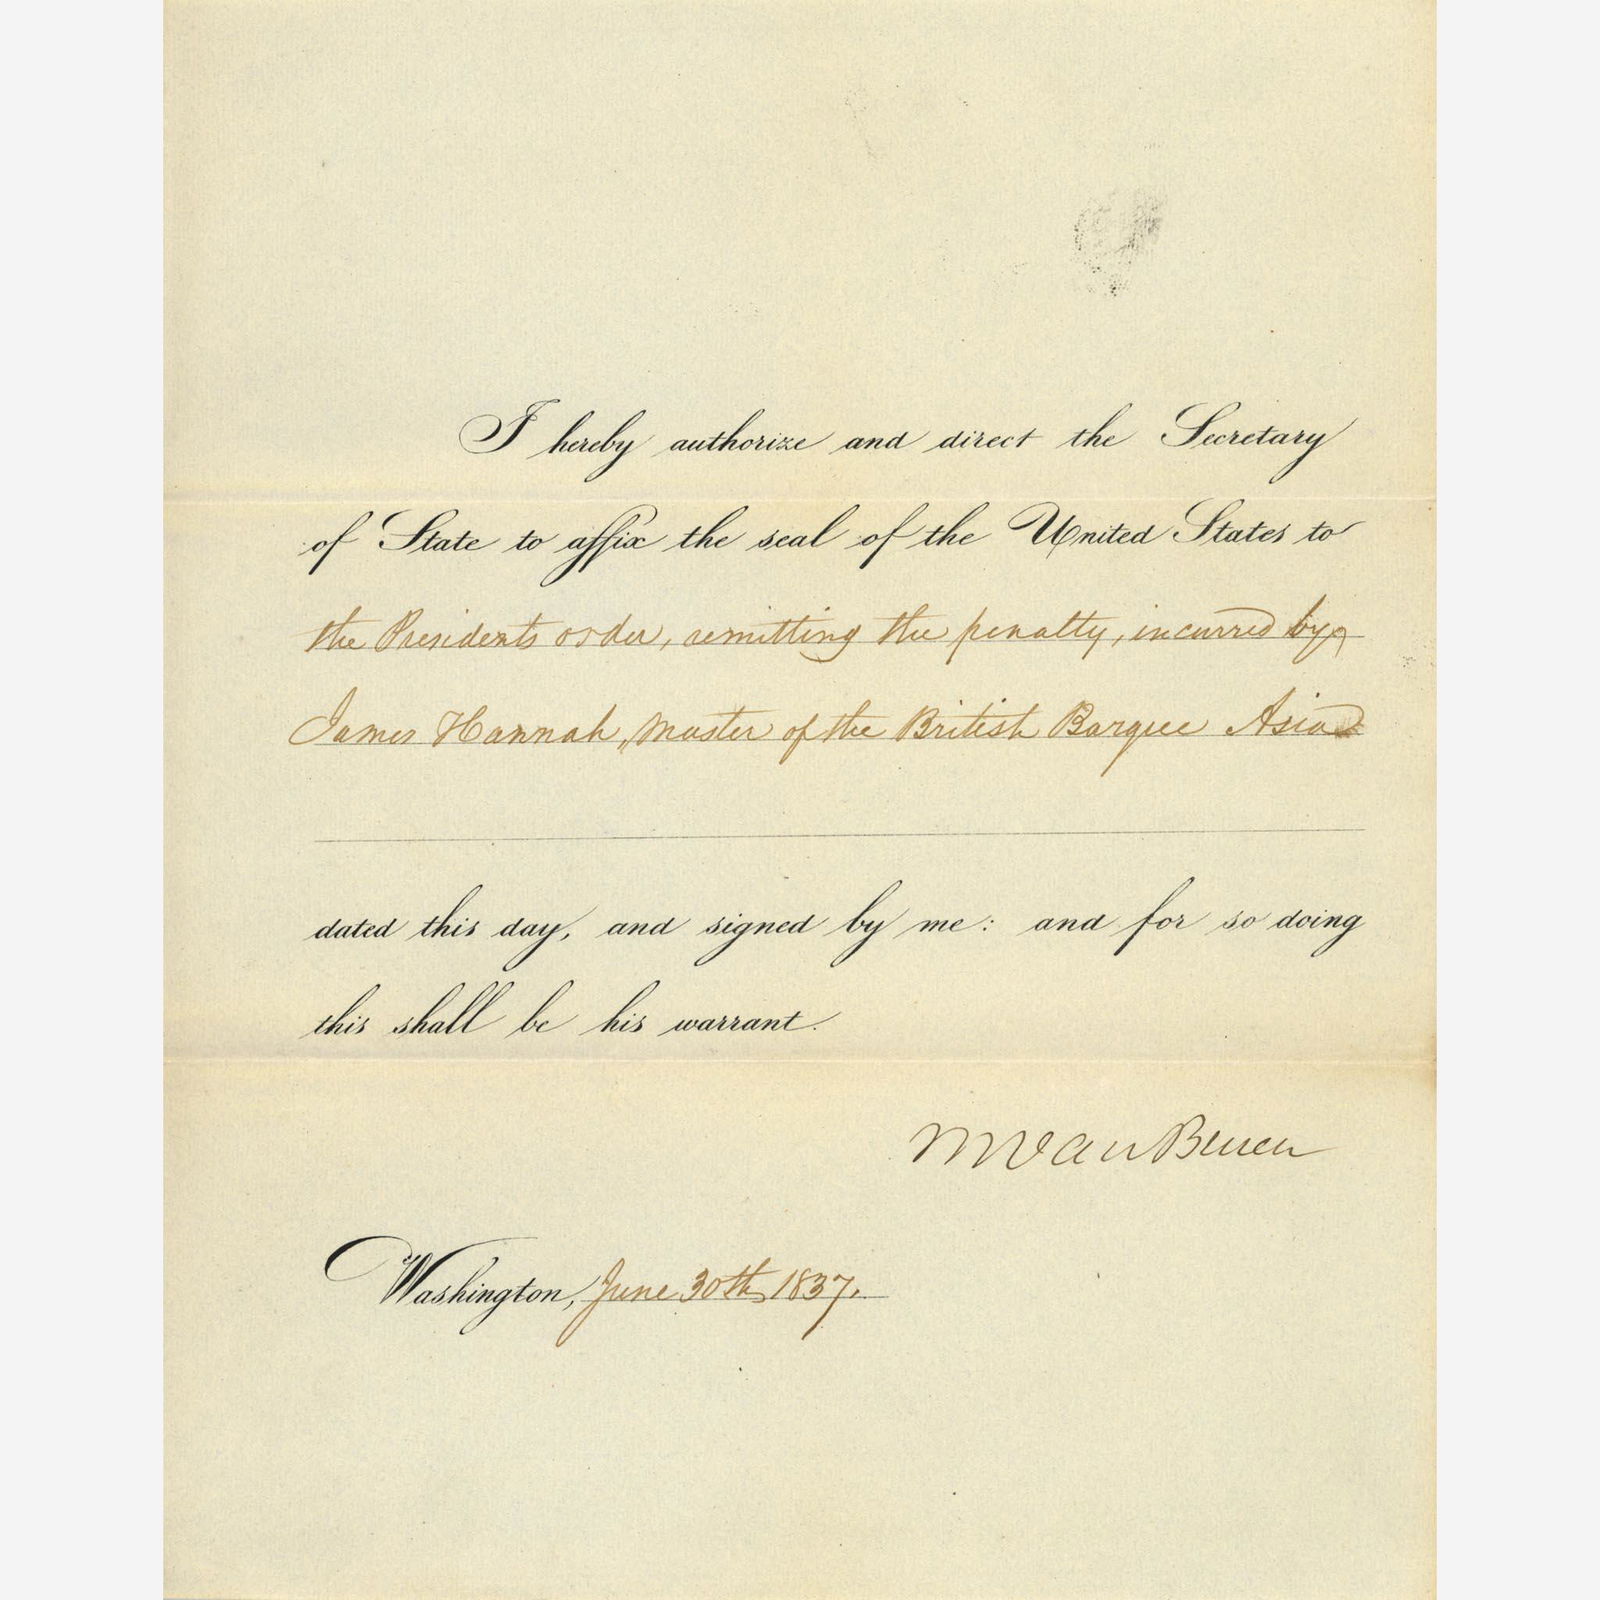 I hereby authorize and direct the Secretary
of State to affix the seal of the United States to
the Presidents order, remitting the penalty, incurred by
James Hannah, Master of the British Barque Asia
dated this day, and signed by me: and for so doing
this shall be his warrant.
M Van Buren
Washington, June 30th 1837.